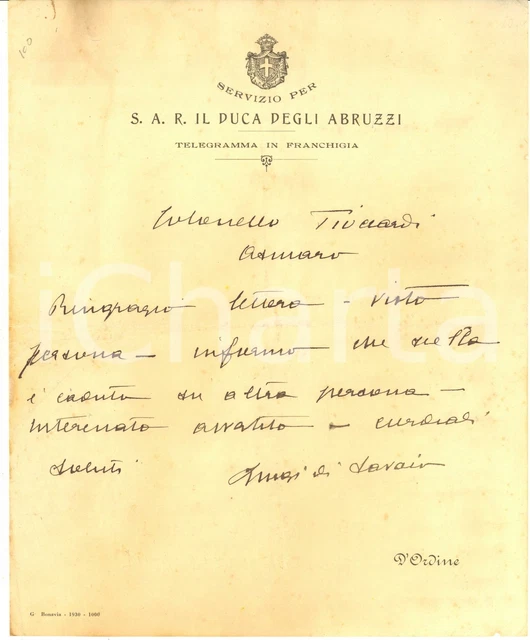 100
SERVIZIO PER
S. A. R. IL DUCA DEGLI ABRUZZI
TELEGRAMMA IN FRANCHIGIA
Colonello
Asmara
Ringrazio lettera – visto
persona – informo che scelta
è caduta su altra persona –
cordiali
saluti Luigi di Savoia
iCharta
D'Ordine
G - 1930 -